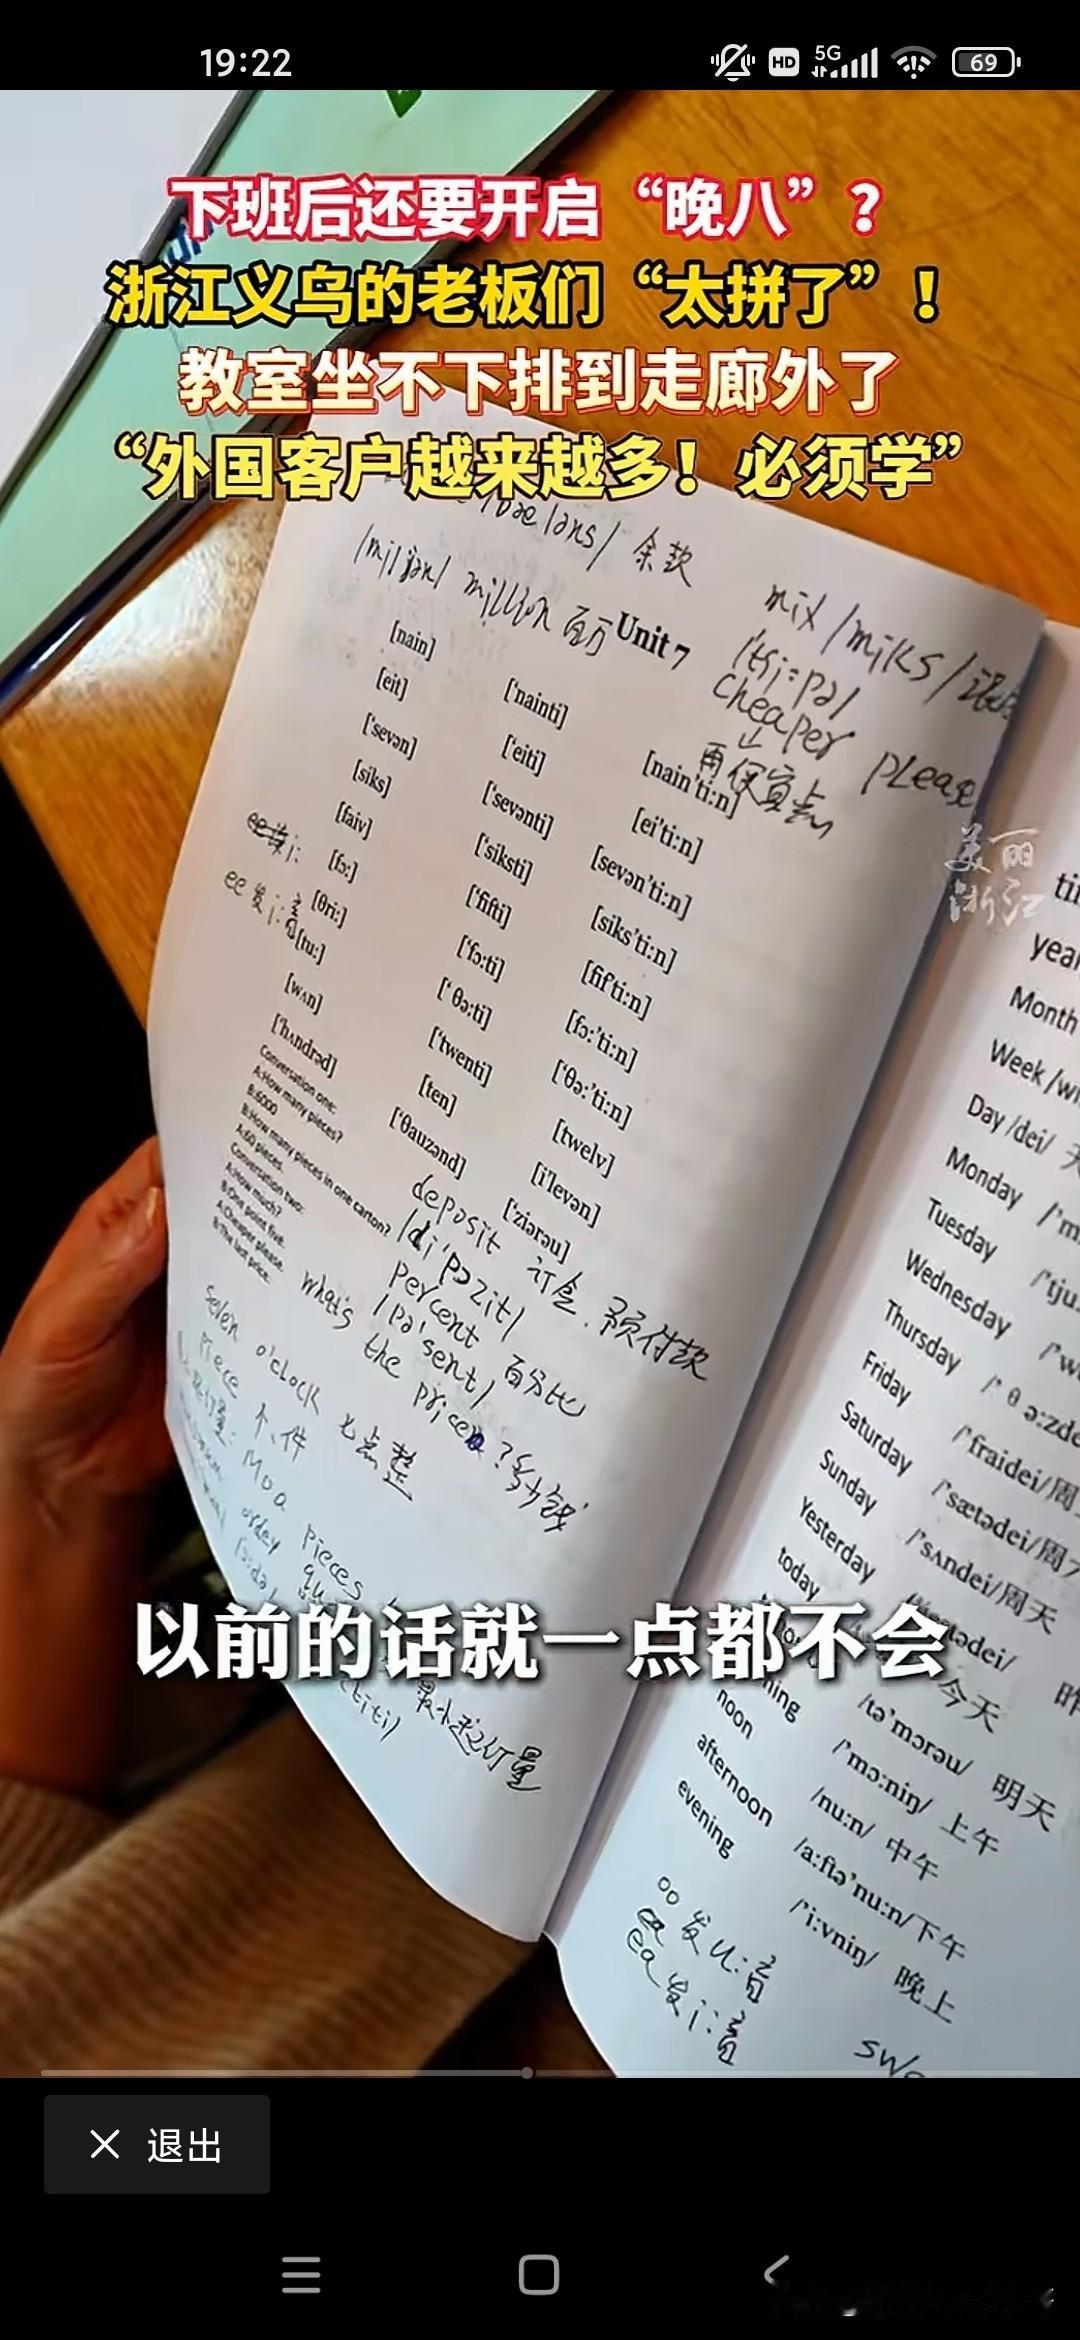 19:22
HD 5G 69
下班后还要开启“晚八”？
浙江义乌的老板们“太拼了”！
教室坐不下排到走廊外了
“外国客户越来越多！必须学”
余款
million 百万
Unit 7
mix /miks/
cheaper please
再便宜点
[nain] ['nainti] [nain'ti:n]
[eit] ['eiti] [ei'ti:n]
['sevən] ['sevənti] [sevən'ti:n]
[siks] ['siksti] [siks'ti:n]
[faiv] ['fifti] [fif'ti:n]
[fɔ:] ['fɔ:ti] [fɔ:'ti:n]
[θri:] ['θə:ti] ['θə:'ti:n]
[tu:] ['twenti] [twelv]
[wʌn] [ten] [i'levən]
['hʌndrəd] ['θauzənd] ['ziərəu]
ee 发i:音
Conversation one:
A:How many pieces?
B:6000
B:How many pieces in one carton?
A:60 pieces.
Conversation two:
A:How much?
B:One point five.
A:Cheaper please.
B:The last price.
deposit 订金、预付款
/di'pɔzit/
percent 百分比
/pə'sent/
what's the price?多少钱
seven o'clock 七点整
piece 个、件
MOQ
pieces
order
最小起订量
美丽浙江
year
Month
Week
Day /dei/ 天
Monday
Tuesday
Wednesday
Thursday
Friday /'fraidei/周
Saturday /'sætədei/周
Sunday /'sʌndei/周天
Yesterday
today 今天
/tə'mɔrəu/ 明天
/'mɔ:niŋ/ 上午
noon /nu:n/ 中午
afternoon /a:ftə'nu:n/下午
evening /'i:vniŋ/ 晚上
oo 发u:音
ea 发i:音
以前的话就一点都不会
退出